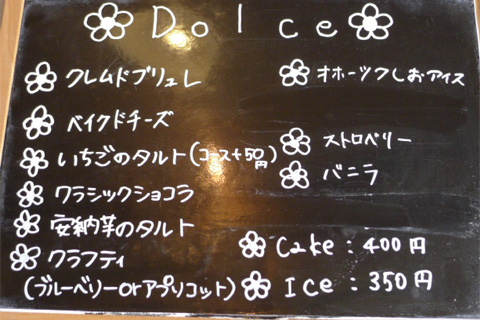 Dolce
クレムドブリュレ
ベイクドチーズ
いちごのタルト(コース+50円)
クラシックショコラ
安納芋のタルト
クラフティ
(ブルーベリーorアプリコット)
オホーツクしおアイス
ストロベリー
バニラ
Cake:400円
Ice:350円